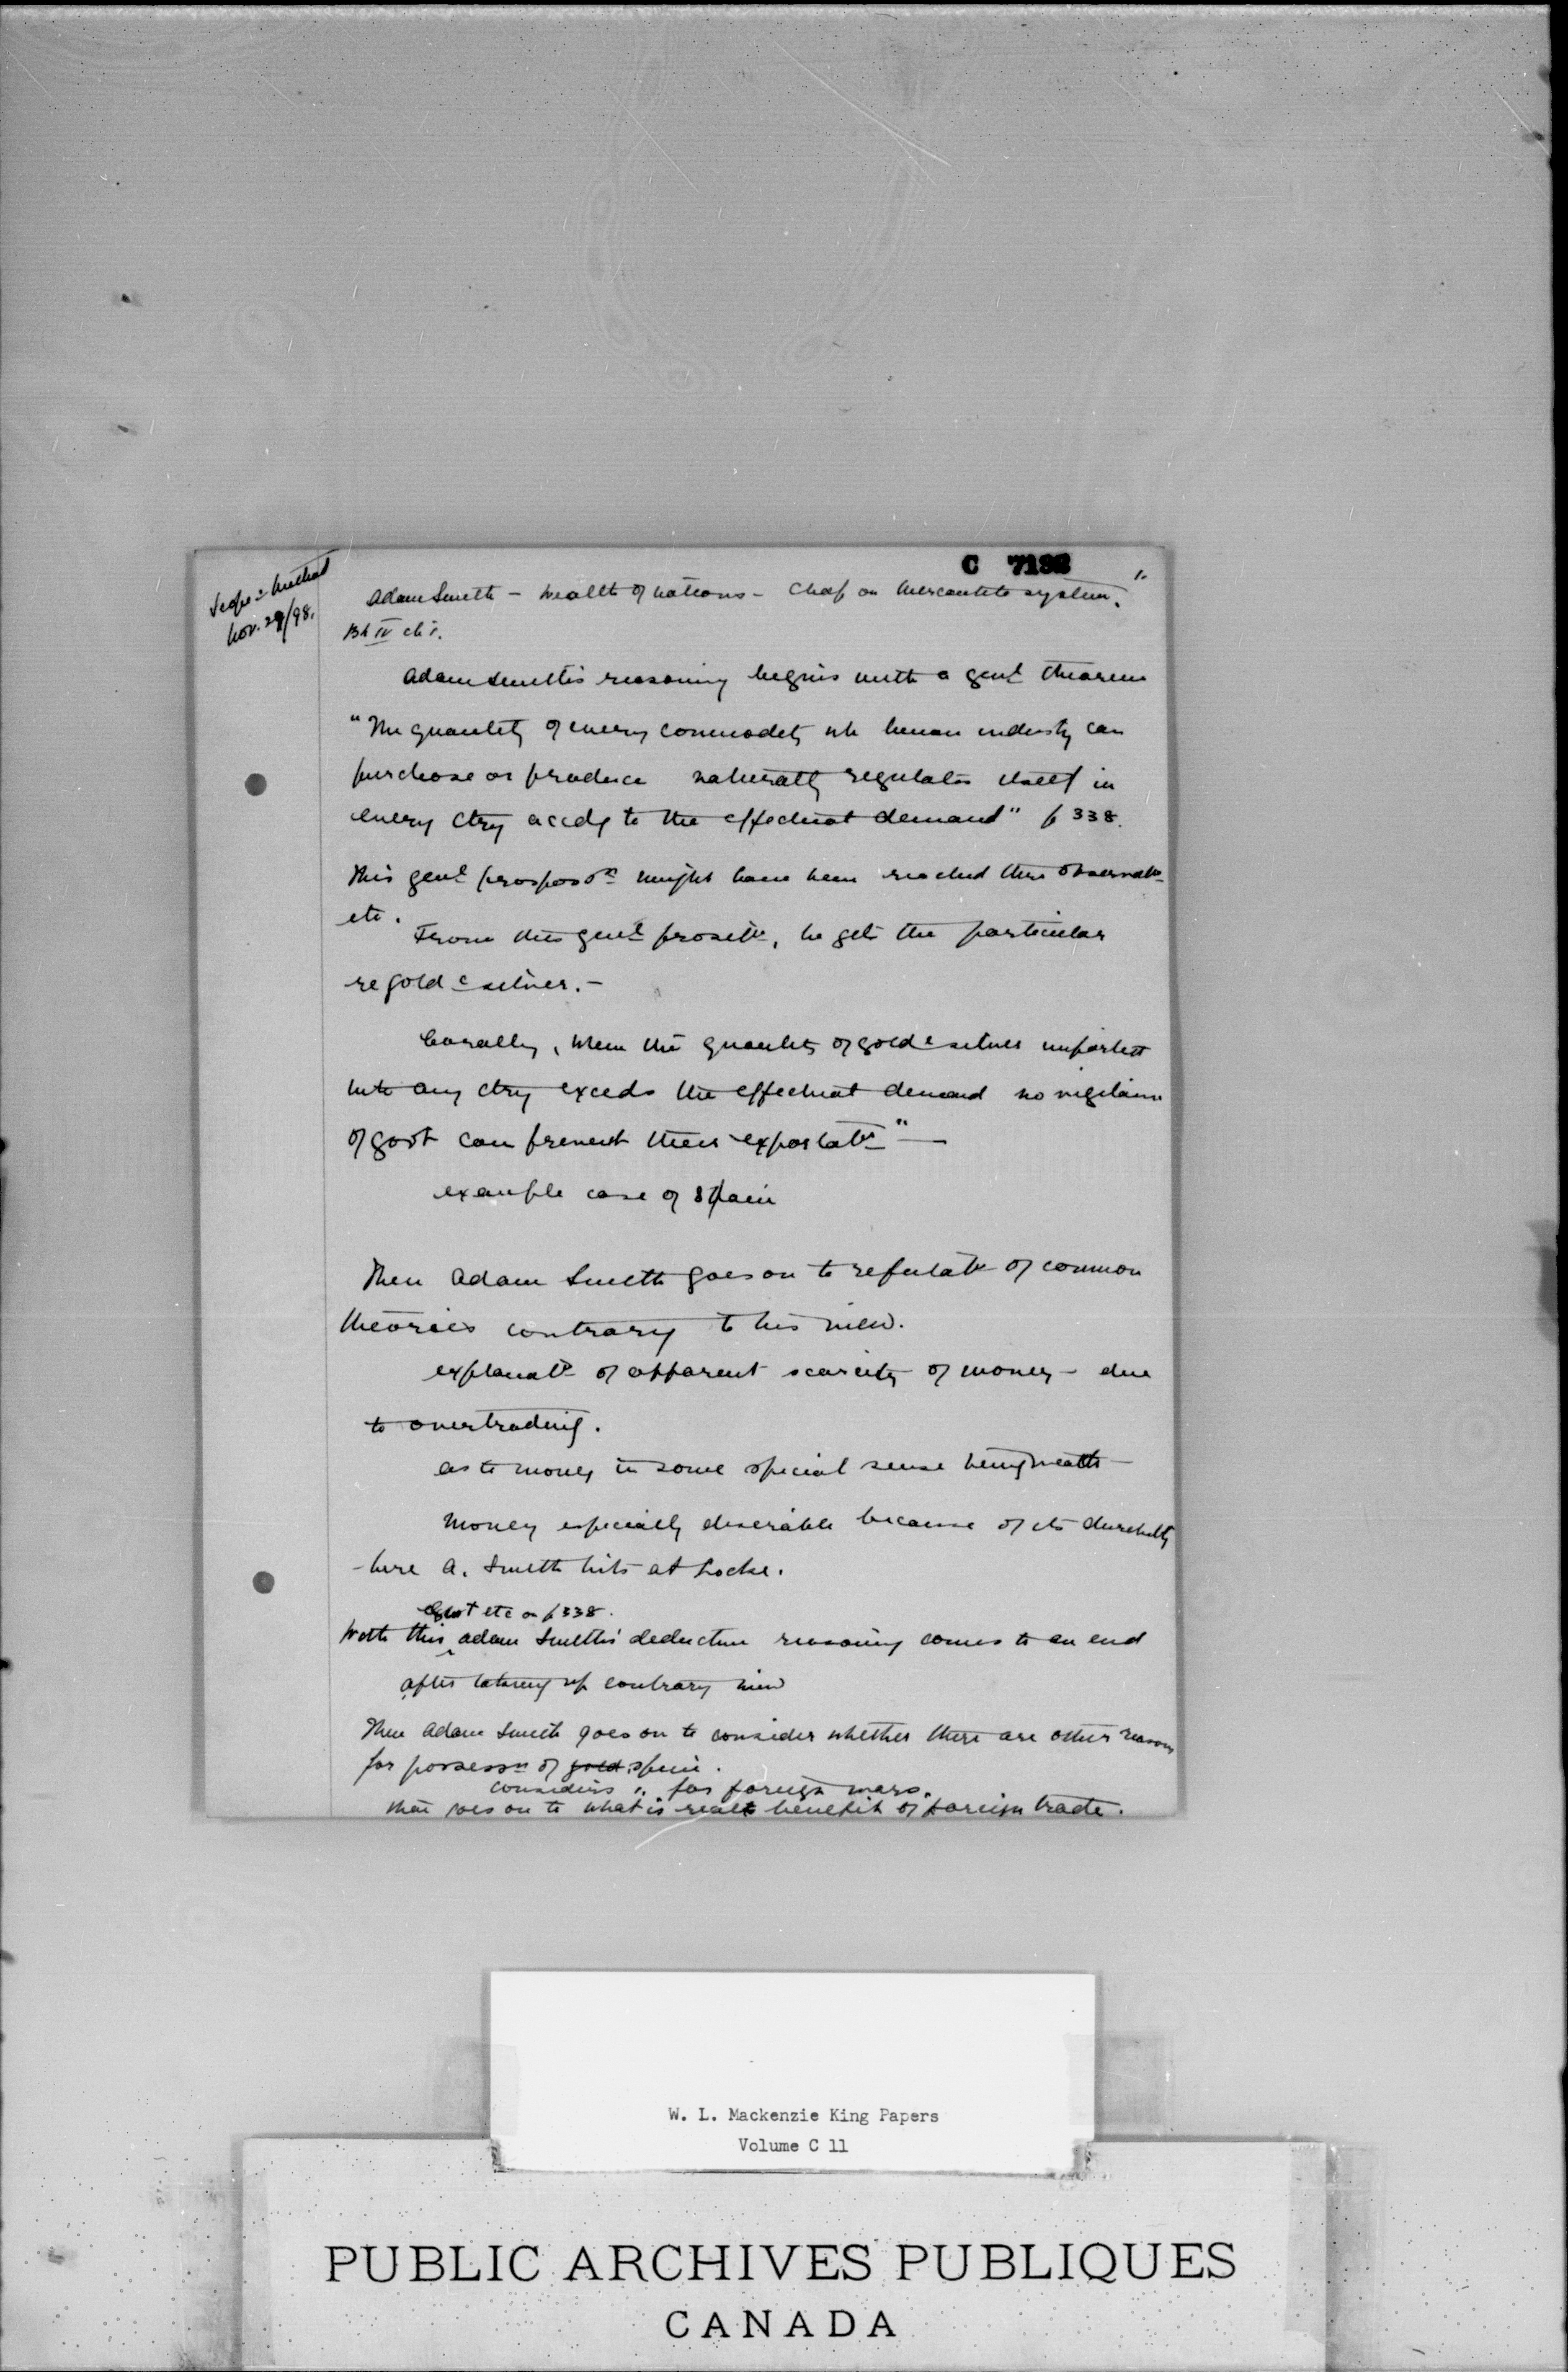 C 7138
1.
Scope & Method
Nov. 29/98.
Adam Smith - Wealth of Nations - Chap on Mercantile system.
Bk IV ch 1.
Adam Smith's reasoning begins with a genl theorem
"The quantity of every commodity wh human industry can
purchase or produce naturally regulates itself in
every ctry accdg to the effectual demand" p 338.
This genl proposn might have been reached thro observatn
etc.
From this genl prositn, he gets the particular
re gold & silver. -
Corolly, When the quantity of gold & silver imported
into any ctry exceeds the effectual demand no vigilance
of govt can prevent their exportatn" —
example case of Spain
Then Adam Smith goes on to refutatn of common
theories contrary to his view.
explanatn of apparent scarcity of money - due
to overtrading.
as to money in some special sense being wealth -
Money especially desirable because of its durability
- here A. Smith hits at Locke.
etc on p 338.
With this Adam Smith's deductive reasoning comes to an end
after taking up contrary view
Then Adam Smith goes on to consider whether there are other reasons
for possessn of gold specie.
considers " for foreign wars.
then goes on to what is real benefit of foreign trade.
W. L. Mackenzie King Papers
Volume C 11
PUBLIC ARCHIVES PUBLIQUES
CANADA